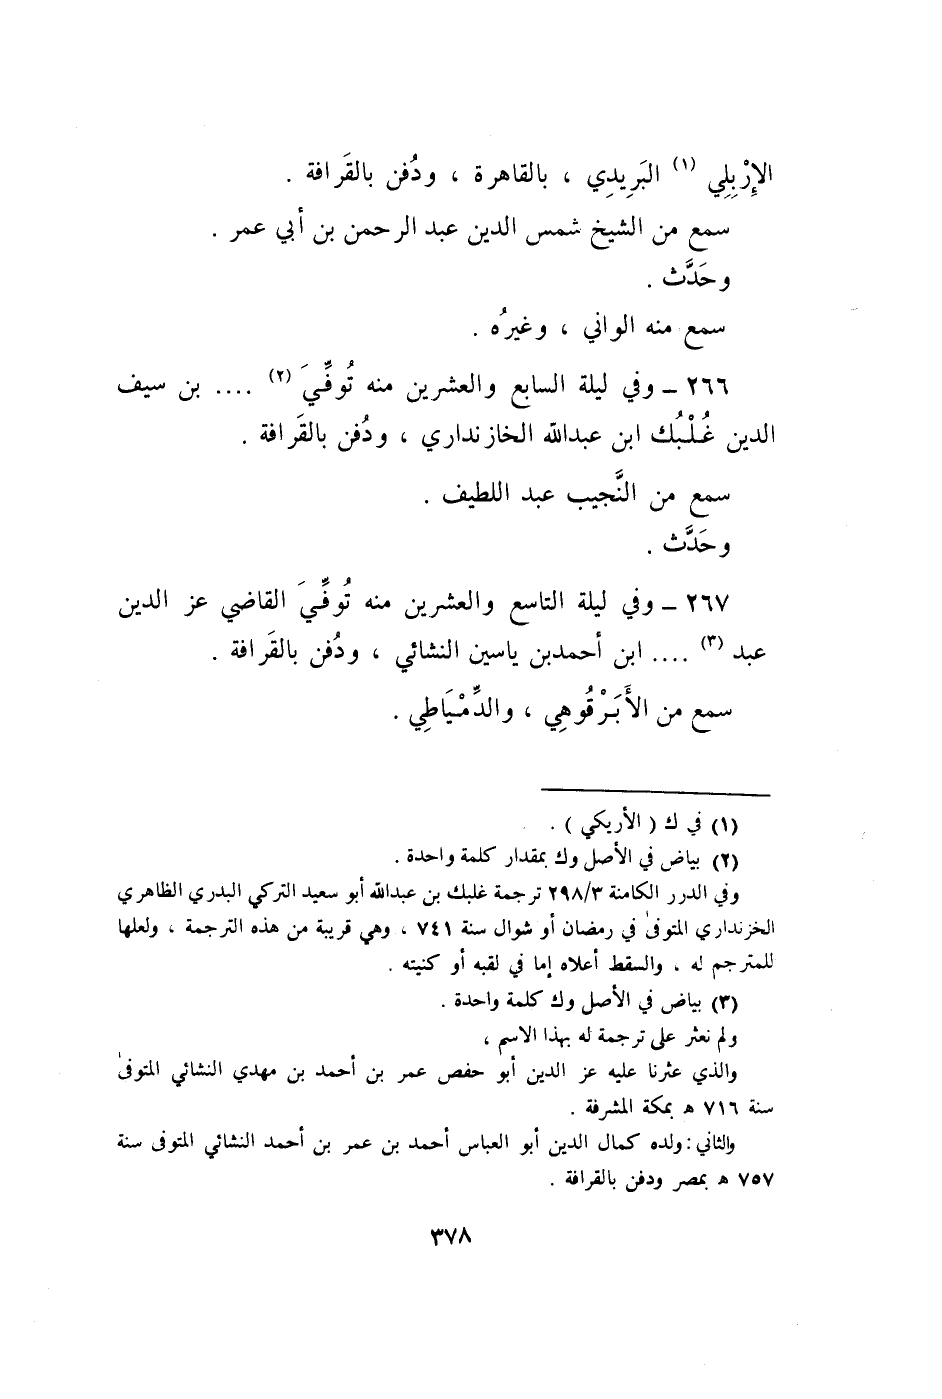 الإِرْبِلِي (١) البَرِيدِي ، بالقاهرة ، ودُفن بالقَرافة .
سمع من الشيخ شمس الدين عبد الرحمن بن أبي عمر .
وحَدَّث .
سمع منه الواني ، وغيرُه .
٢٦٦ ــ وفي ليلة السابع والعشرين منه تُوفِّيَ (٢) .... بن سيف
الدين غُلْبُك ابن عبدالله الخازنداري ، ودُفن بالقَرافة .
سمع من النَّجيب عبد اللطيف .
وحَدَّث .
٢٦٧ ــ وفي ليلة التاسع والعشرين منه تُوفِّيَ القاضي عز الدين
عبد (٣) .... ابن أحمدبن ياسين النشائي ، ودُفن بالقَرافة .
سمع من الأَبَرْقُوهِي ، والدِّمْيَاطِي .
(١) في ك ( الأربكي ) .
(٢) بياض في الأصل وك بمقدار كلمة واحدة .
وفي الدرر الكامنة ٢٩٨/٣ ترجمة غلبك بن عبدالله أبو سعيد التركي البدري الظاهري
الخزنداري المتوفىٰ في رمضان أو شوال سنة ٧٤١ ، وهي قريبة من هذه الترجمة ، ولعلها
للمترجم له ، والسقط أعلاه إما في لقبه أو كنيته .
(٣) بياض في الأصل وك كلمة واحدة .
ولم نعثر على ترجمة له بهذا الاسم ،
والذي عثرنا عليه عز الدين أبو حفص عمر بن أحمد بن مهدي النشائي المتوفىٰ
سنة ٧١٦ هـ بمكة المشرفة .
والثاني : ولده كمال الدين أبو العباس أحمد بن عمر بن أحمد النشائي المتوفى سنة
٧٥٧ هـ بمصر ودفن بالقرافة .
٣٧٨